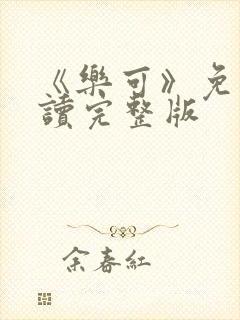 《樂可》免
讀完整版
余春紅